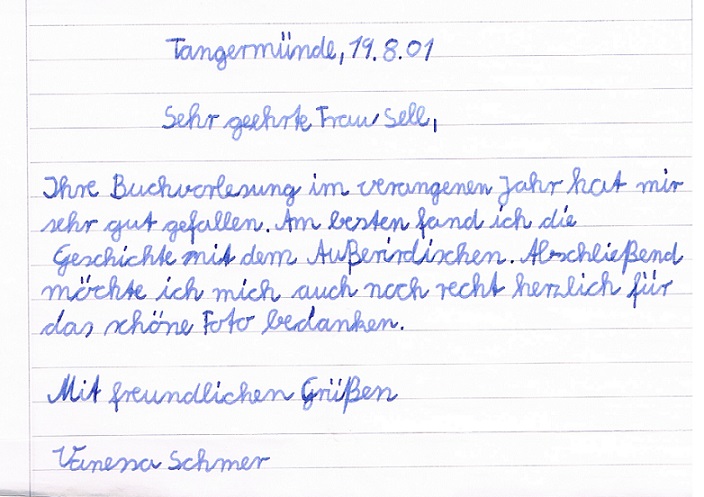 Tangermünde, 19.8.01
Sehr geehrte Frau Sell,
Ihre Buchvorlesung im verangenen Jahr hat mir
sehr gut gefallen. Am besten fand ich die
Geschichte mit dem Außerirdischen. Abschließend
möchte ich mich auch noch recht herzlich für
das schöne Foto bedanken.
Mit freundlichen Grüßen
Vanessa Schmer